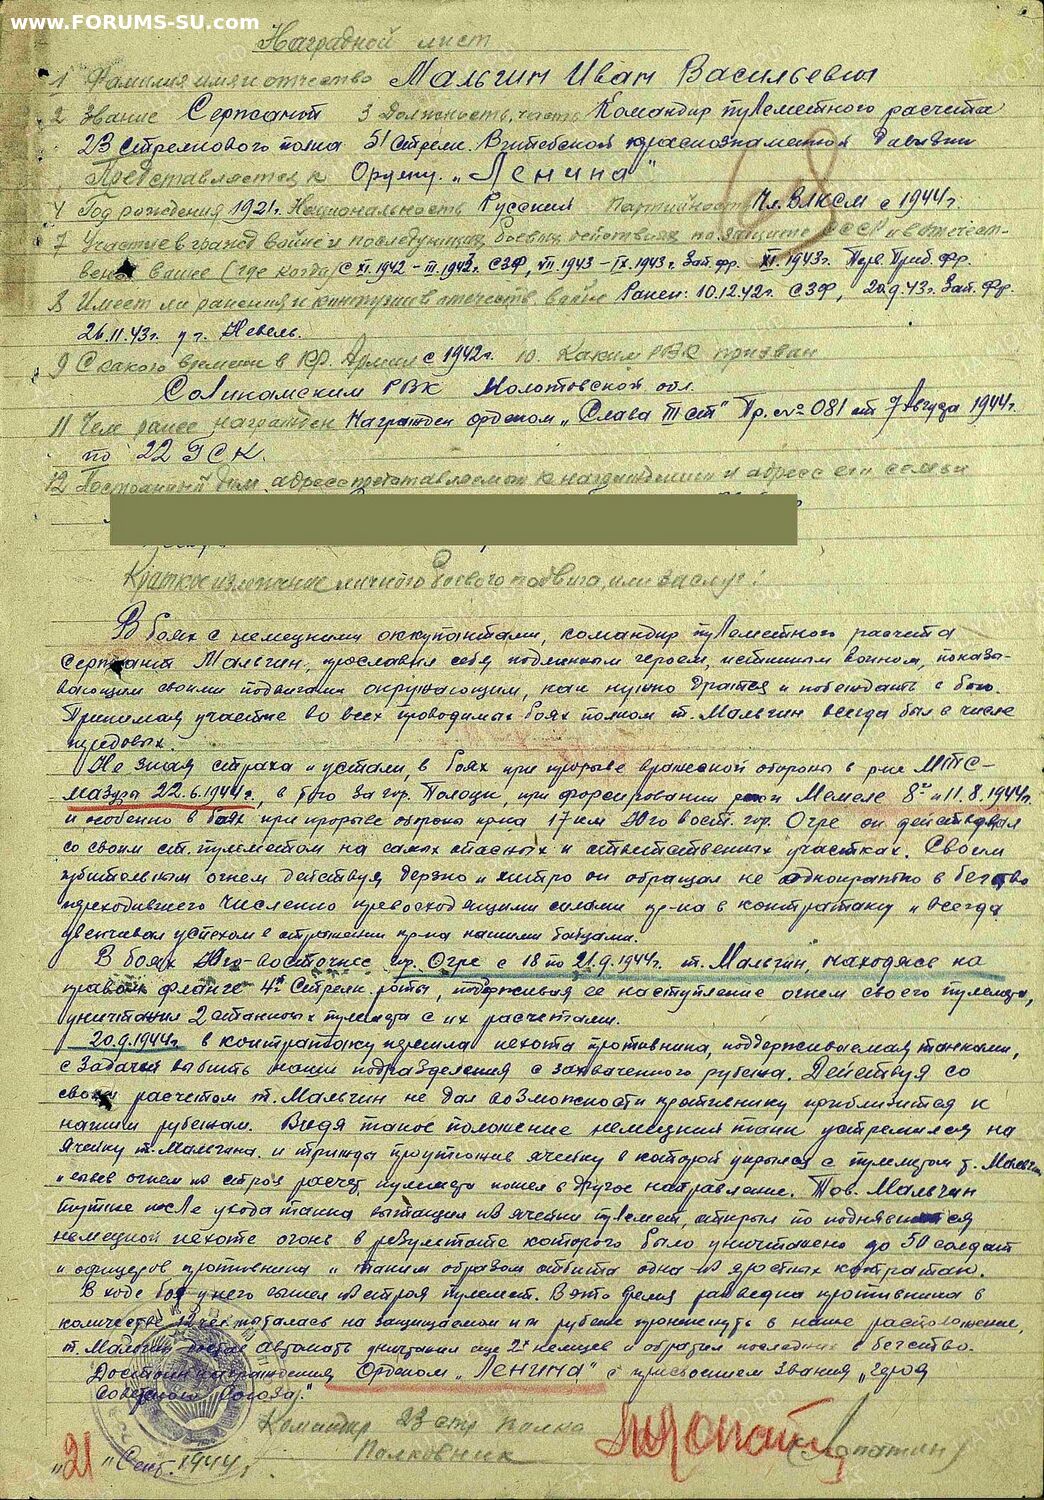 www.FORUMS-SU.com
Наградной лист
1 Фамилия имя и отчество Мальгин Иван Васильевич
2 Звание Сержант 3 Должность, часть Командир пулеметного расчета
23 стрелкового полка 51 Стрелк. Витебской краснознаменной Дивизии
Представляется к Ордену „Ленина"
4 Год рождения 1921г. Национальность Русский Партийность Чл. ВЛКСМ с 1944г.
7 Участие в гражд войне и последующих боевых действиях по защите СССР и в отечест-
венной войне (где когда) с XI.1942 – III.1943г. СЗФ, VII.1943 – IX.1943г. Зап. фр. XI.1943г. Перв. Приб. фр.
8 Имеет ли ранения и контузии в отечеств. войне Ранен: 10.12.42г. СЗФ, 20.9.43г. Зап. Фр.
26.11.43г. у г. Невель.
9 С какого времени в Кр. Армии с 1942г. 10. Каким РВК призван
Соликамским РВК Молотовской обл.
11 Чем ранее награжден Награжден орденом „Слава III ст" Пр. № 081 от 7 Августа 1944г.
по 22 ГСК.
12 Постоянный дом. адрес представляемого к награждению и адрес его семьи
Краткое изложение личного боевого подвига, или заслуг:
В боях с немецкими оккупантами, командир пулеметного расчета
Сержант Мальгин, прославил себя подлинным героем, истинным воином, показы-
вающим своими подвигами окружающим, как нужно драться и побеждать с бою.
Принимая участие во всех проводимых боях полком т. Мальгин всегда был в числе
передовых.
Не зная страха и устали, в боях при прорыве вражеской обороны в р-не МТС-
Мазуры 22.6.1944г., в бою за гор. Полоцк, при форсировании реки Мемеле 8го и 11.8.1944г.
и особенно в боях при прорыве обороны пр-ка 17 км Юго вост. гор. Огре он действовал
со своим ст. пулеметом на самых опасных и ответственных участках. Своим
губительным огнем действуя дерзко и хитро он обращал не однократно в бегство
переходившего численно превосходящими силами пр-ка в контратаку и всегда
увенчивал успехом в отражении пр-ка нашими бойцами.
В боях Юго-восточнее гор. Огре с 18 по 21.9.1944г. т. Мальгин, находясь на
правом фланге 4й Стрелк. роты, поддерживая ее наступление огнем своего пулемета,
уничтожил 2 станковых пулемета с их расчетами.
20.9.1944г. в контратаку перешла пехота противника, поддерживаемая танками,
с задачей выбить наши подразделения с захваченного рубежа. Действуя со
своим расчетом т. Мальгин не дал возможности противнику приблизится к
нашим рубежам. Видя такое положение немецкий танк устремился на
ячейку т. Мальгина и трижды проутюжив ячейку в которой укрылся с пулеметом т. Мальгин
и выведя огнем из строя расчет пулемета пошел в другое направление. Тов. Мальгин
тутже после ухода танка вытащил из ячейки пулемет, открыл по поднявшейся
немецкой пехоте огонь в результате которого было уничтожено до 50 солдат
и офицеров противника и таким образом отбита одна из яростных контратак.
В ходе боя у него вышел из строя пулемет. В это время разведка противника в
количестве 12 чел. пыталась на защищаемом им рубеже проникнуть в наше расположение,
т. Мальгин автомата уничтожил еще 2х немцев и обратил последних в бегство.
Достоин награждения Орденом „Ленина" с присвоением звания „Героя
Советского Союза."
Командир 23 стр полка
Полковник Лопатин
„21" Сент. 1944г.